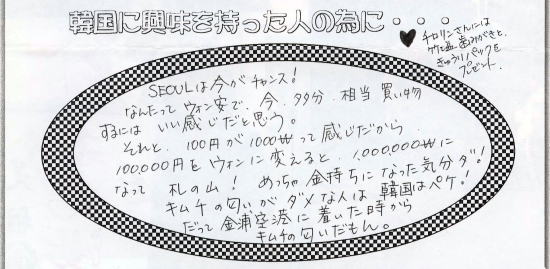 韓国に興味を持った人の為に・・・
チャロリンさんには
竹塩歯みがきと、
きゅうりパックを
プレゼント。
SEOULは今がチャンス!
なんたってウォン安で、今、多分、相当 買い物
するには いい感じだと思う。
それと、100円が1000₩って感じだから、
100,000円をウォンに変えると、1,000,000₩に
なって 札の山! めっちゃ金持ちになった気分ダ!
キムチの匂いがダメな人は韓国はペケ!
だって金浦空港に着いた時から
キムチの匂いだもん。